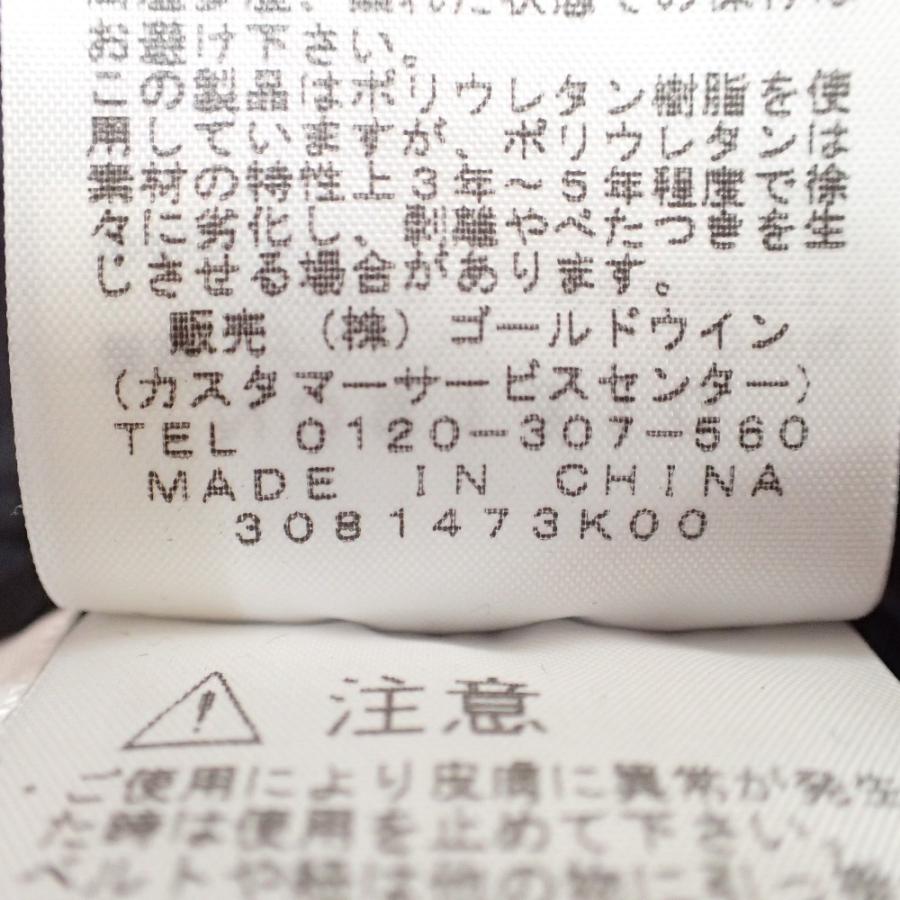 お避け下さい。
この製品はポリウレタン樹脂を使
用していますが、ポリウレタンは
素材の特性上3年～5年程度で徐
々に劣化し、剥離やべたつきを生
じさせる場合があります。
販売 (株) ゴールドウイン
(カスタマーサービスセンター)
TEL 0120-307-560
MADE IN CHINA
3081473K00
注意
・ご使用により皮膚に異常が発生
た時は使用を止めて下さい。